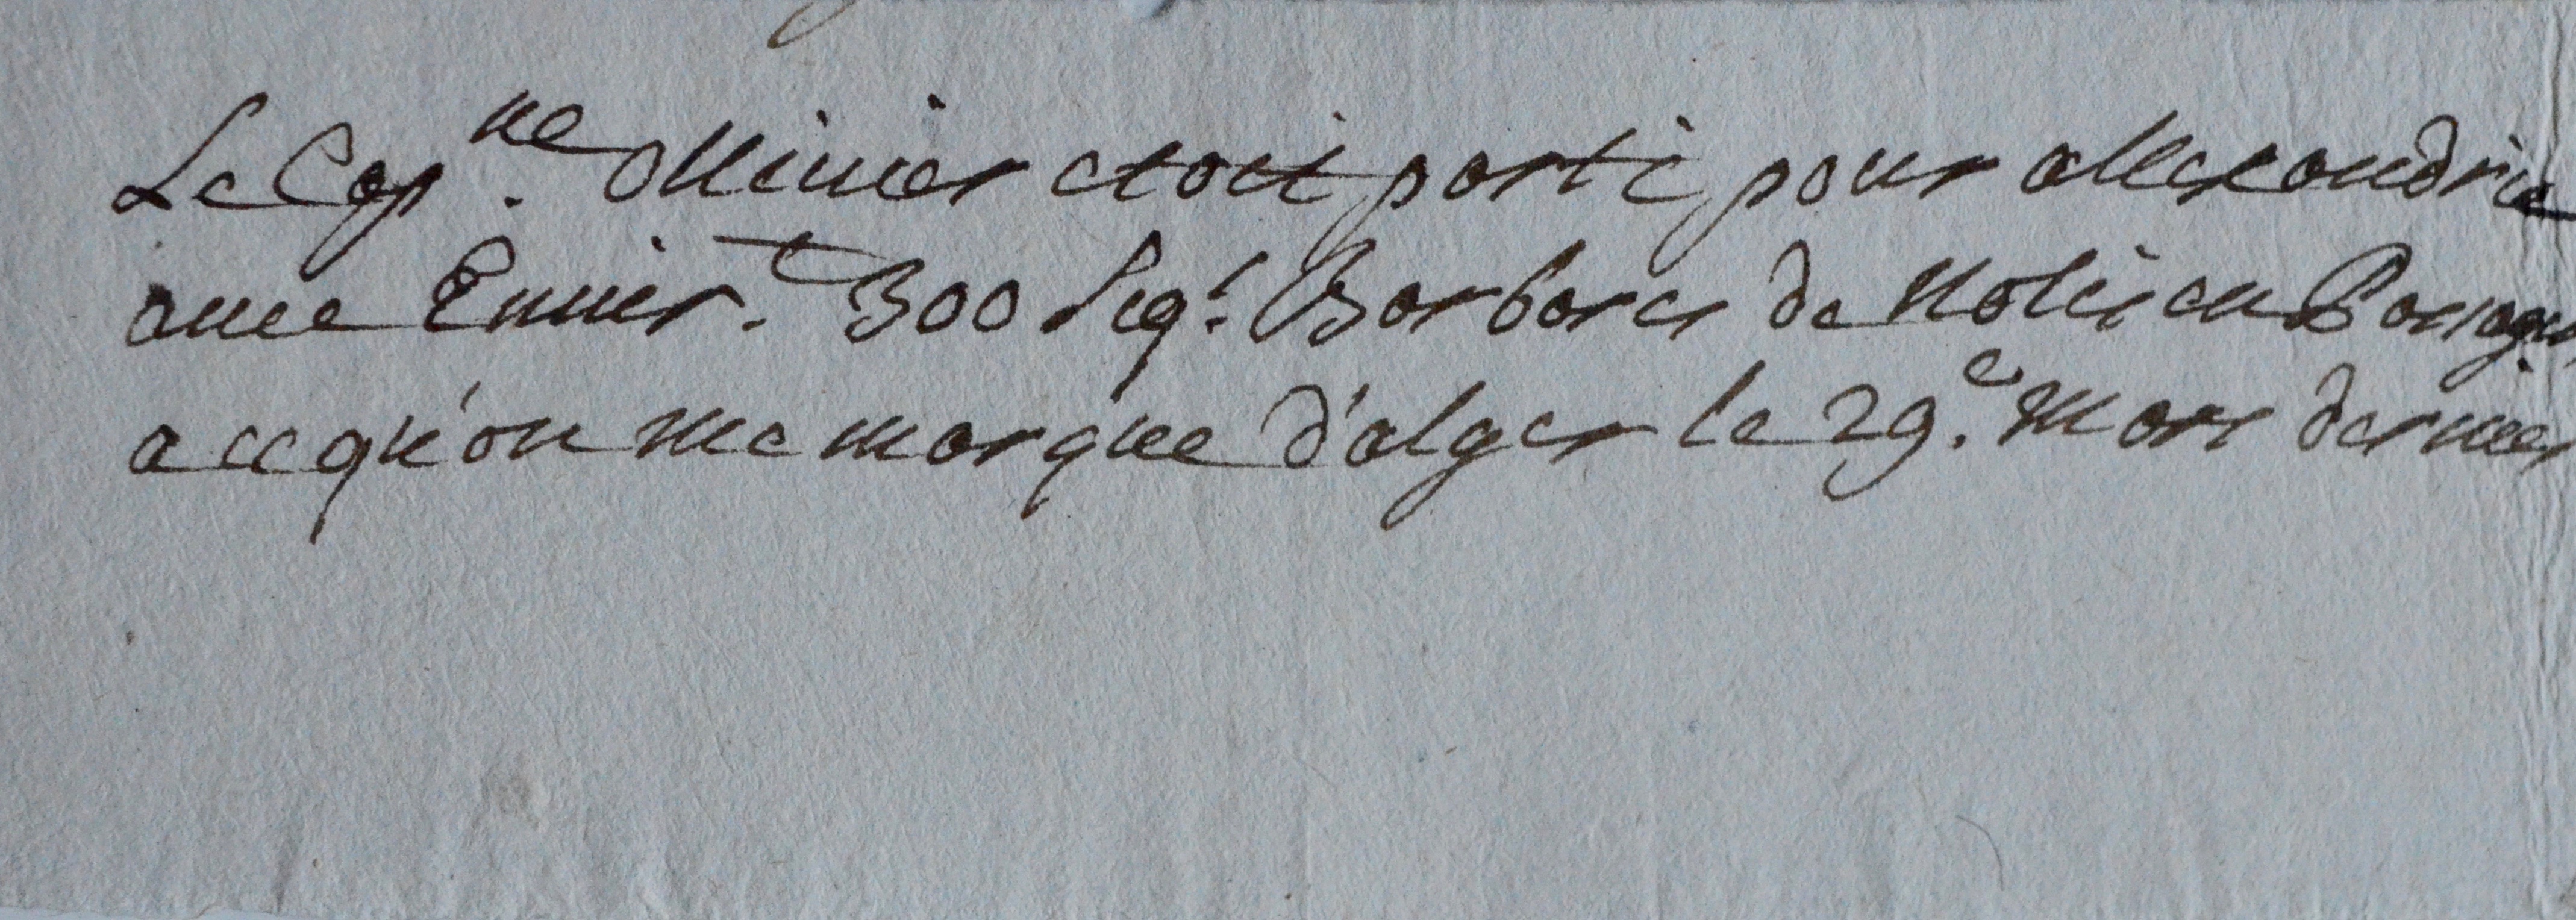 Le Cap.ne Minier etoit parti pour allexandrie
avec Envir.t 300 Seq.s Barbares de Nolis en Passag.
a ce qu'on me marque d'alger le 29.e Mars dernier